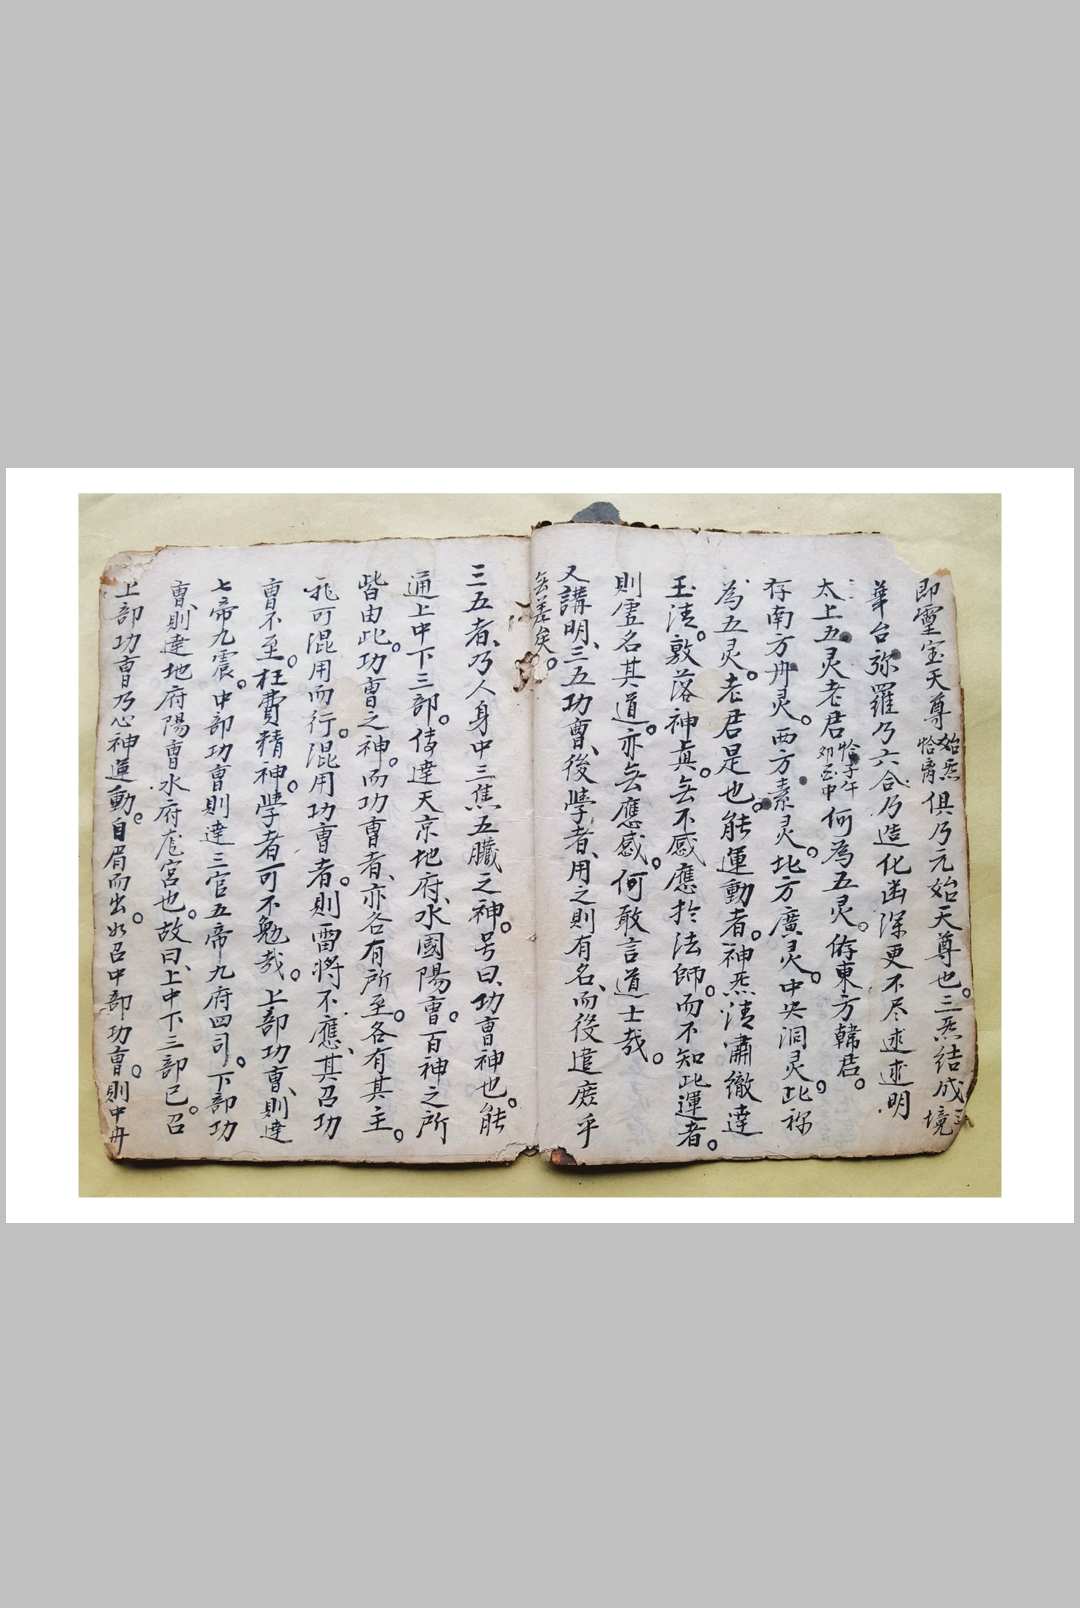 即靈宝天尊始炁恰离俱乃元始天尊也。三炁结成三境
華台弥羅乃六合乃造化幽深更不尽述述明
太上五灵老君恰子午卯酉中何為五灵。侟東方韓君。
存南方丹灵。西方素灵。北方廣灵。中央洞灵此祢
為五灵。老君是也。能運動者。神炁清嘯徹達
玉清。敷落神真。无不感應於法師。而不知此運者。
則虛名其道。亦无應感。何敢言道士哉。
又講明、三五功曹、後學者、用之則有名、而役遣庶乎
无差矣。
三五者、乃人身中三焦五臟之神。号曰、功曹神也。能
通上中下三部。俦達天京地府、水國陽曹。百神之所
皆由此。功曹之神。而功曹者、亦各有所至。各有其主。
可混用而行。混用功曹者。則雷將不應、其召功
曹不至。枉費精神。學者可不勉哉。上部功曹、則達
七帝九震。中部功曹則達三官五帝九府四司。下部功
曹、則達地府陽曹水府宮也。故曰、上中下三部已。召
上部功曹乃心神運動。自眉而出。如召中部功曹。則中丹